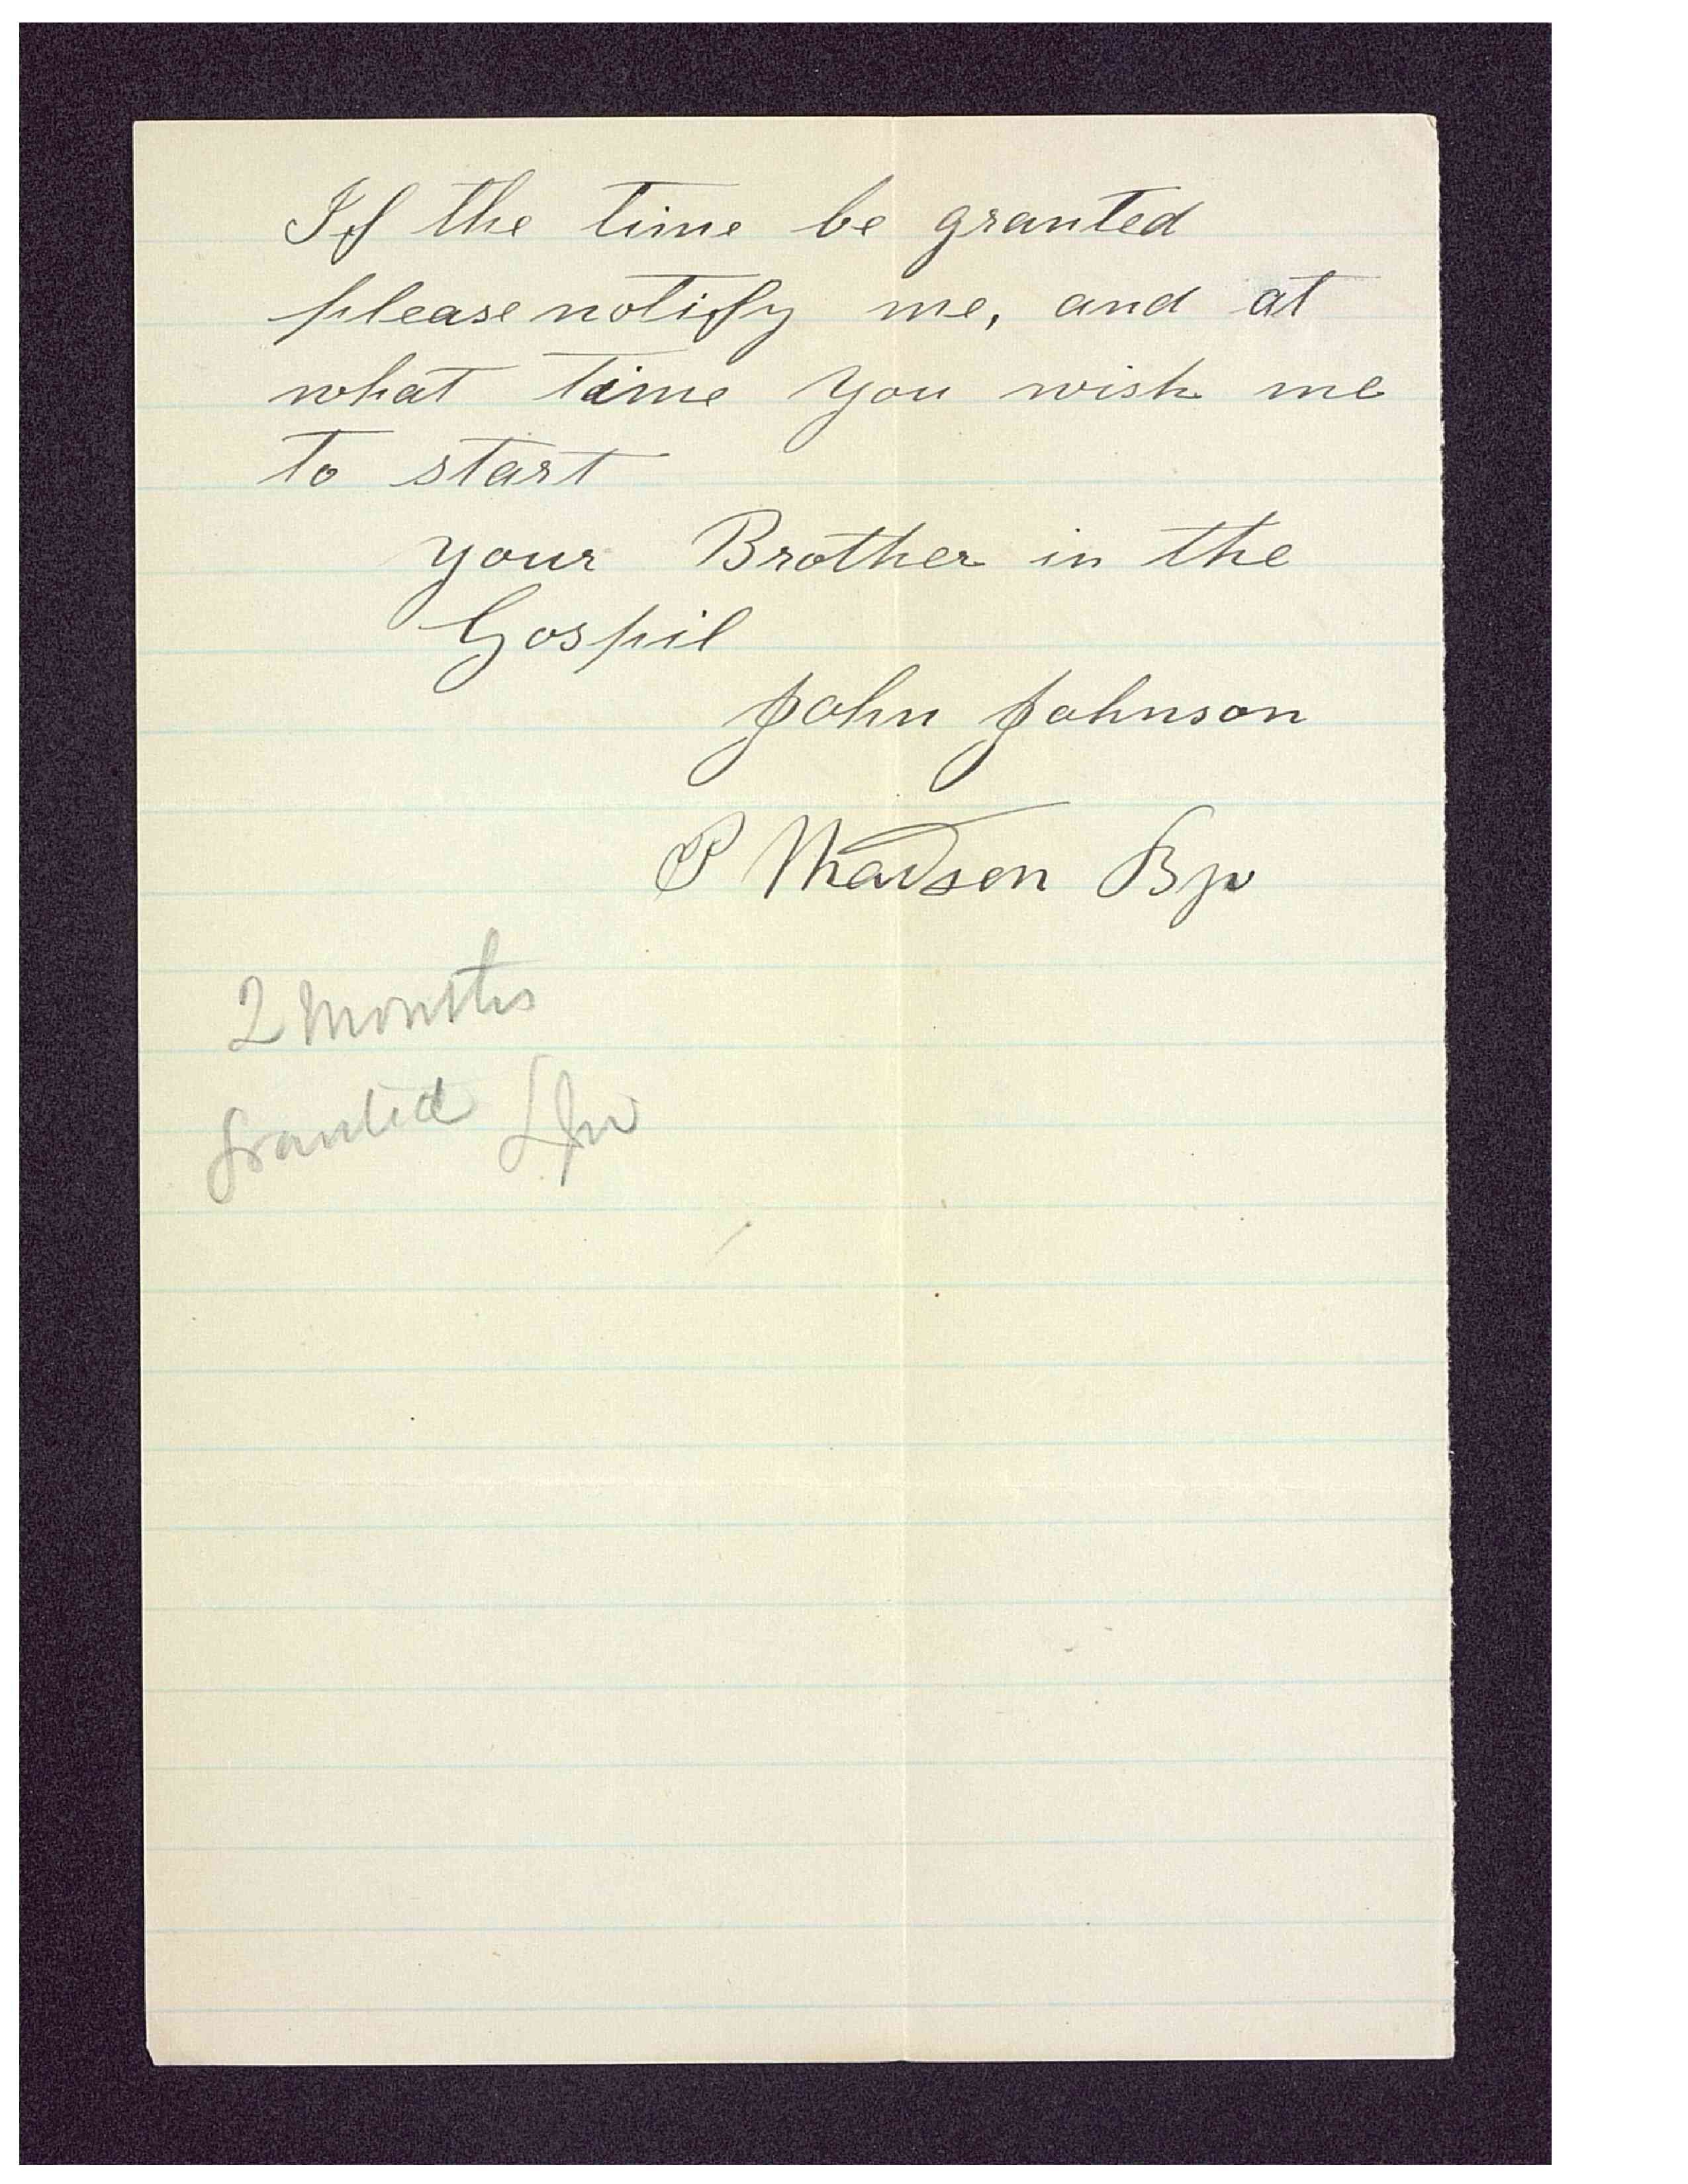 If the time be granted
please notify me, and at
what time you wish me
to start
your Brother in the
Gospil
John Johnson
P Madsen Bp
2 months
granted